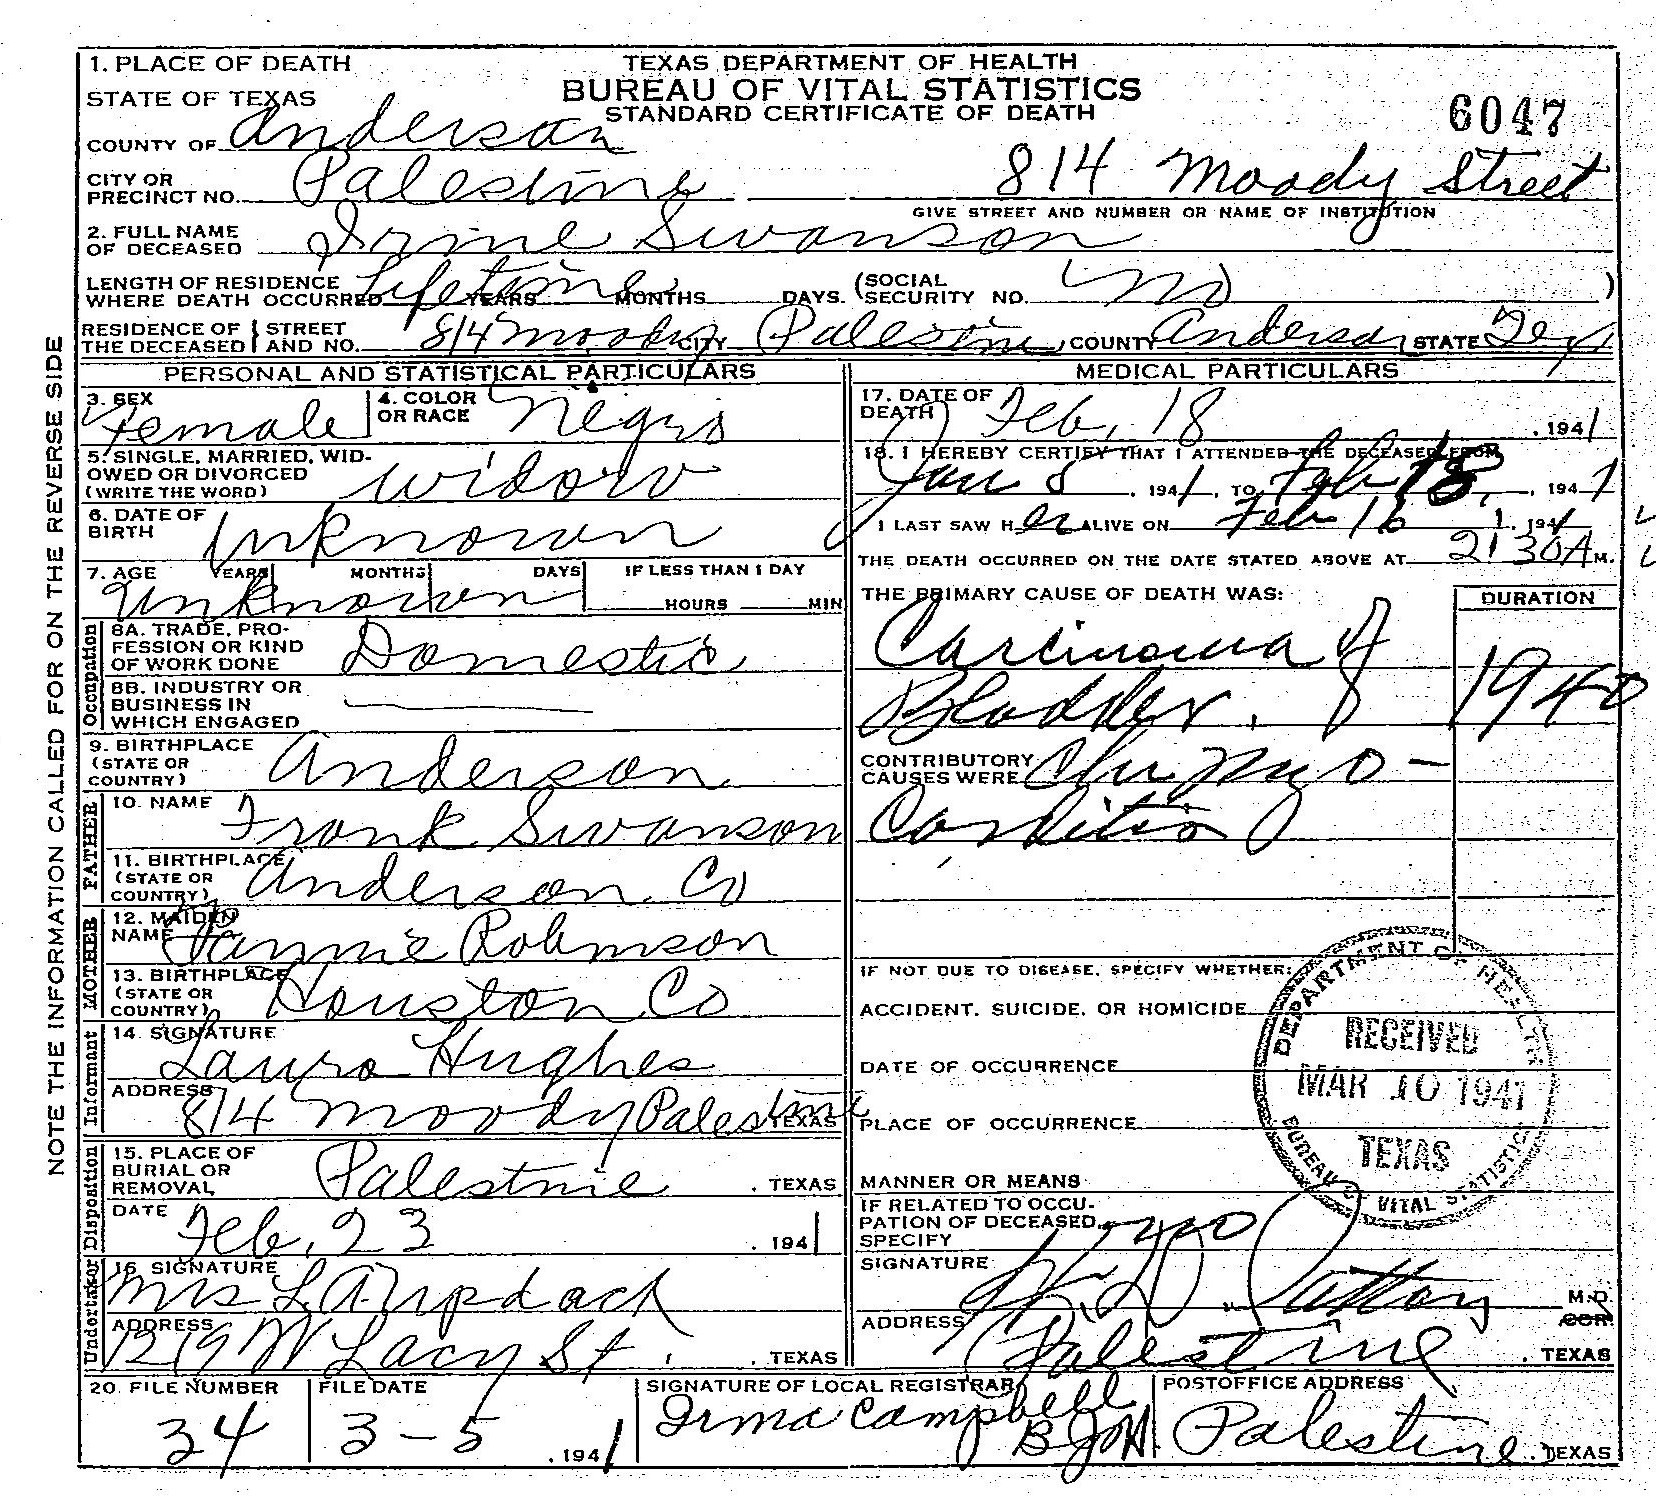 1. PLACE OF DEATH
TEXAS DEPARTMENT OF HEALTH
BUREAU OF VITAL STATISTICS
STANDARD CERTIFICATE OF DEATH
6047
STATE OF TEXAS
COUNTY OF Anderson
CITY OR PRECINCT NO. Palestine 814 Moody Street
GIVE STREET AND NUMBER OR NAME OF INSTITUTION
2. FULL NAME OF DECEASED Irine Swanson
LENGTH OF RESIDENCE WHERE DEATH OCCURRED Lifetime YEARS MONTHS DAYS. (SOCIAL SECURITY NO. no )
RESIDENCE OF THE DECEASED STREET AND NO. 814 Moody CITY Palestine, COUNTY Anderson, STATE Tex
NOTE THE INFORMATION CALLED FOR ON THE REVERSE SIDE
PERSONAL AND STATISTICAL PARTICULARS
3. SEX Female
4. COLOR OR RACE Negro
5. SINGLE, MARRIED, WIDOWED OR DIVORCED (WRITE THE WORD) widow
6. DATE OF BIRTH Unknown
7. AGE YEARS MONTHS DAYS IF LESS THAN 1 DAY
Unknown HOURS MIN
Occupation
8A. TRADE, PROFESSION OR KIND OF WORK DONE Domestic
8B. INDUSTRY OR BUSINESS IN WHICH ENGAGED
9. BIRTHPLACE (STATE OR COUNTRY) Anderson
FATHER
10. NAME Frank Swanson
11. BIRTHPLACE (STATE OR COUNTRY) Anderson Co
MOTHER
12. MAIDEN NAME Fannie Robinson
13. BIRTHPLACE (STATE OR COUNTRY) Houston Co
Informant
14. SIGNATURE Laura Hughes
ADDRESS 814 Moody Palestine TEXAS
Disposition
15. PLACE OF BURIAL OR REMOVAL Palestine . TEXAS
DATE Feb, 23 . 1941
Undertaker
16. SIGNATURE Mrs L.A.
ADDRESS 1219 W Lacy St . TEXAS
MEDICAL PARTICULARS
17. DATE OF DEATH Feb, 18 . 1941
18. I HEREBY CERTIFY THAT I ATTENDED THE DECEASED FROM
Jan 5 . 1941, TO Feb 18, . 1941
I LAST SAW HER ALIVE ON Feb 16 1. 1941
THE DEATH OCCURRED ON THE DATE STATED ABOVE AT 2:30A M.
THE PRIMARY CAUSE OF DEATH WAS: DURATION
Carcinoma of
Bladder. 1940
CONTRIBUTORY CAUSES WERE
IF NOT DUE TO DISEASE, SPECIFY WHETHER:
ACCIDENT, SUICIDE, OR HOMICIDE
DATE OF OCCURRENCE
PLACE OF OCCURRENCE
MANNER OR MEANS
IF RELATED TO OCCUPATION OF DECEASED, SPECIFY no
DEPARTMENT OF HEALTH
RECEIVED
MAR 10 1941
TEXAS
BUREAU OF VITAL STATISTICS
SIGNATURE M.D. OR
ADDRESS Palestine . TEXAS
20. FILE NUMBER 34
FILE DATE 3-5 . 1941
SIGNATURE OF LOCAL REGISTRAR Irma Campbell
POSTOFFICE ADDRESS Palestine . TEXAS